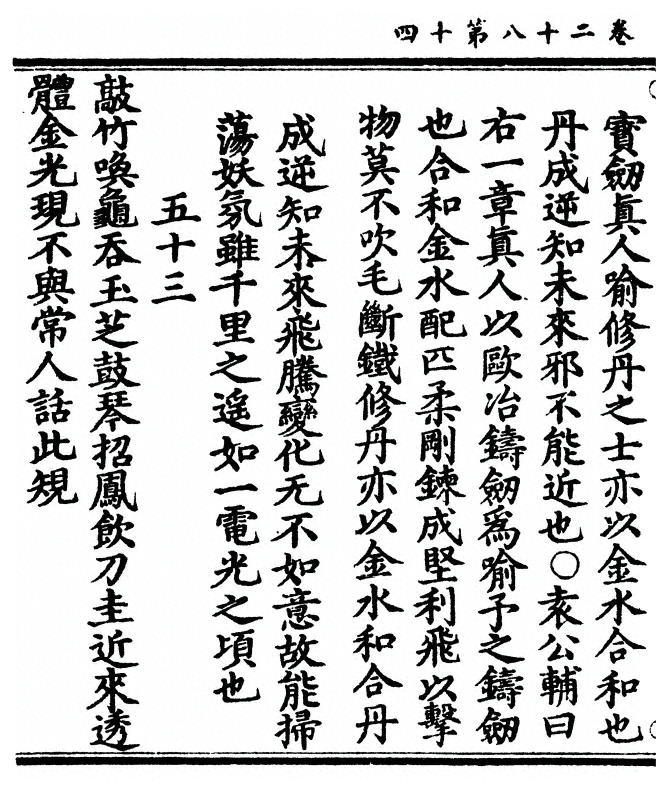 卷二十八第十四
寶劒眞人喻修丹之士亦以金水合和也
丹成逆知未來邪不能近也○袁公輔曰
右一章眞人以歐冶鑄劒爲喻予之鑄劒
也合和金水配匹柔剛鍊成堅利飛以擊
物莫不吹毛斷鐵修丹亦以金水和合丹
成逆知未來飛騰變化无不如意故能掃
蕩妖氛雖千里之遥如一電光之頃也
五十三
敲竹喚龜吞玉芝鼓琴招鳳飲刀圭近來透
體金光現不與常人話此規